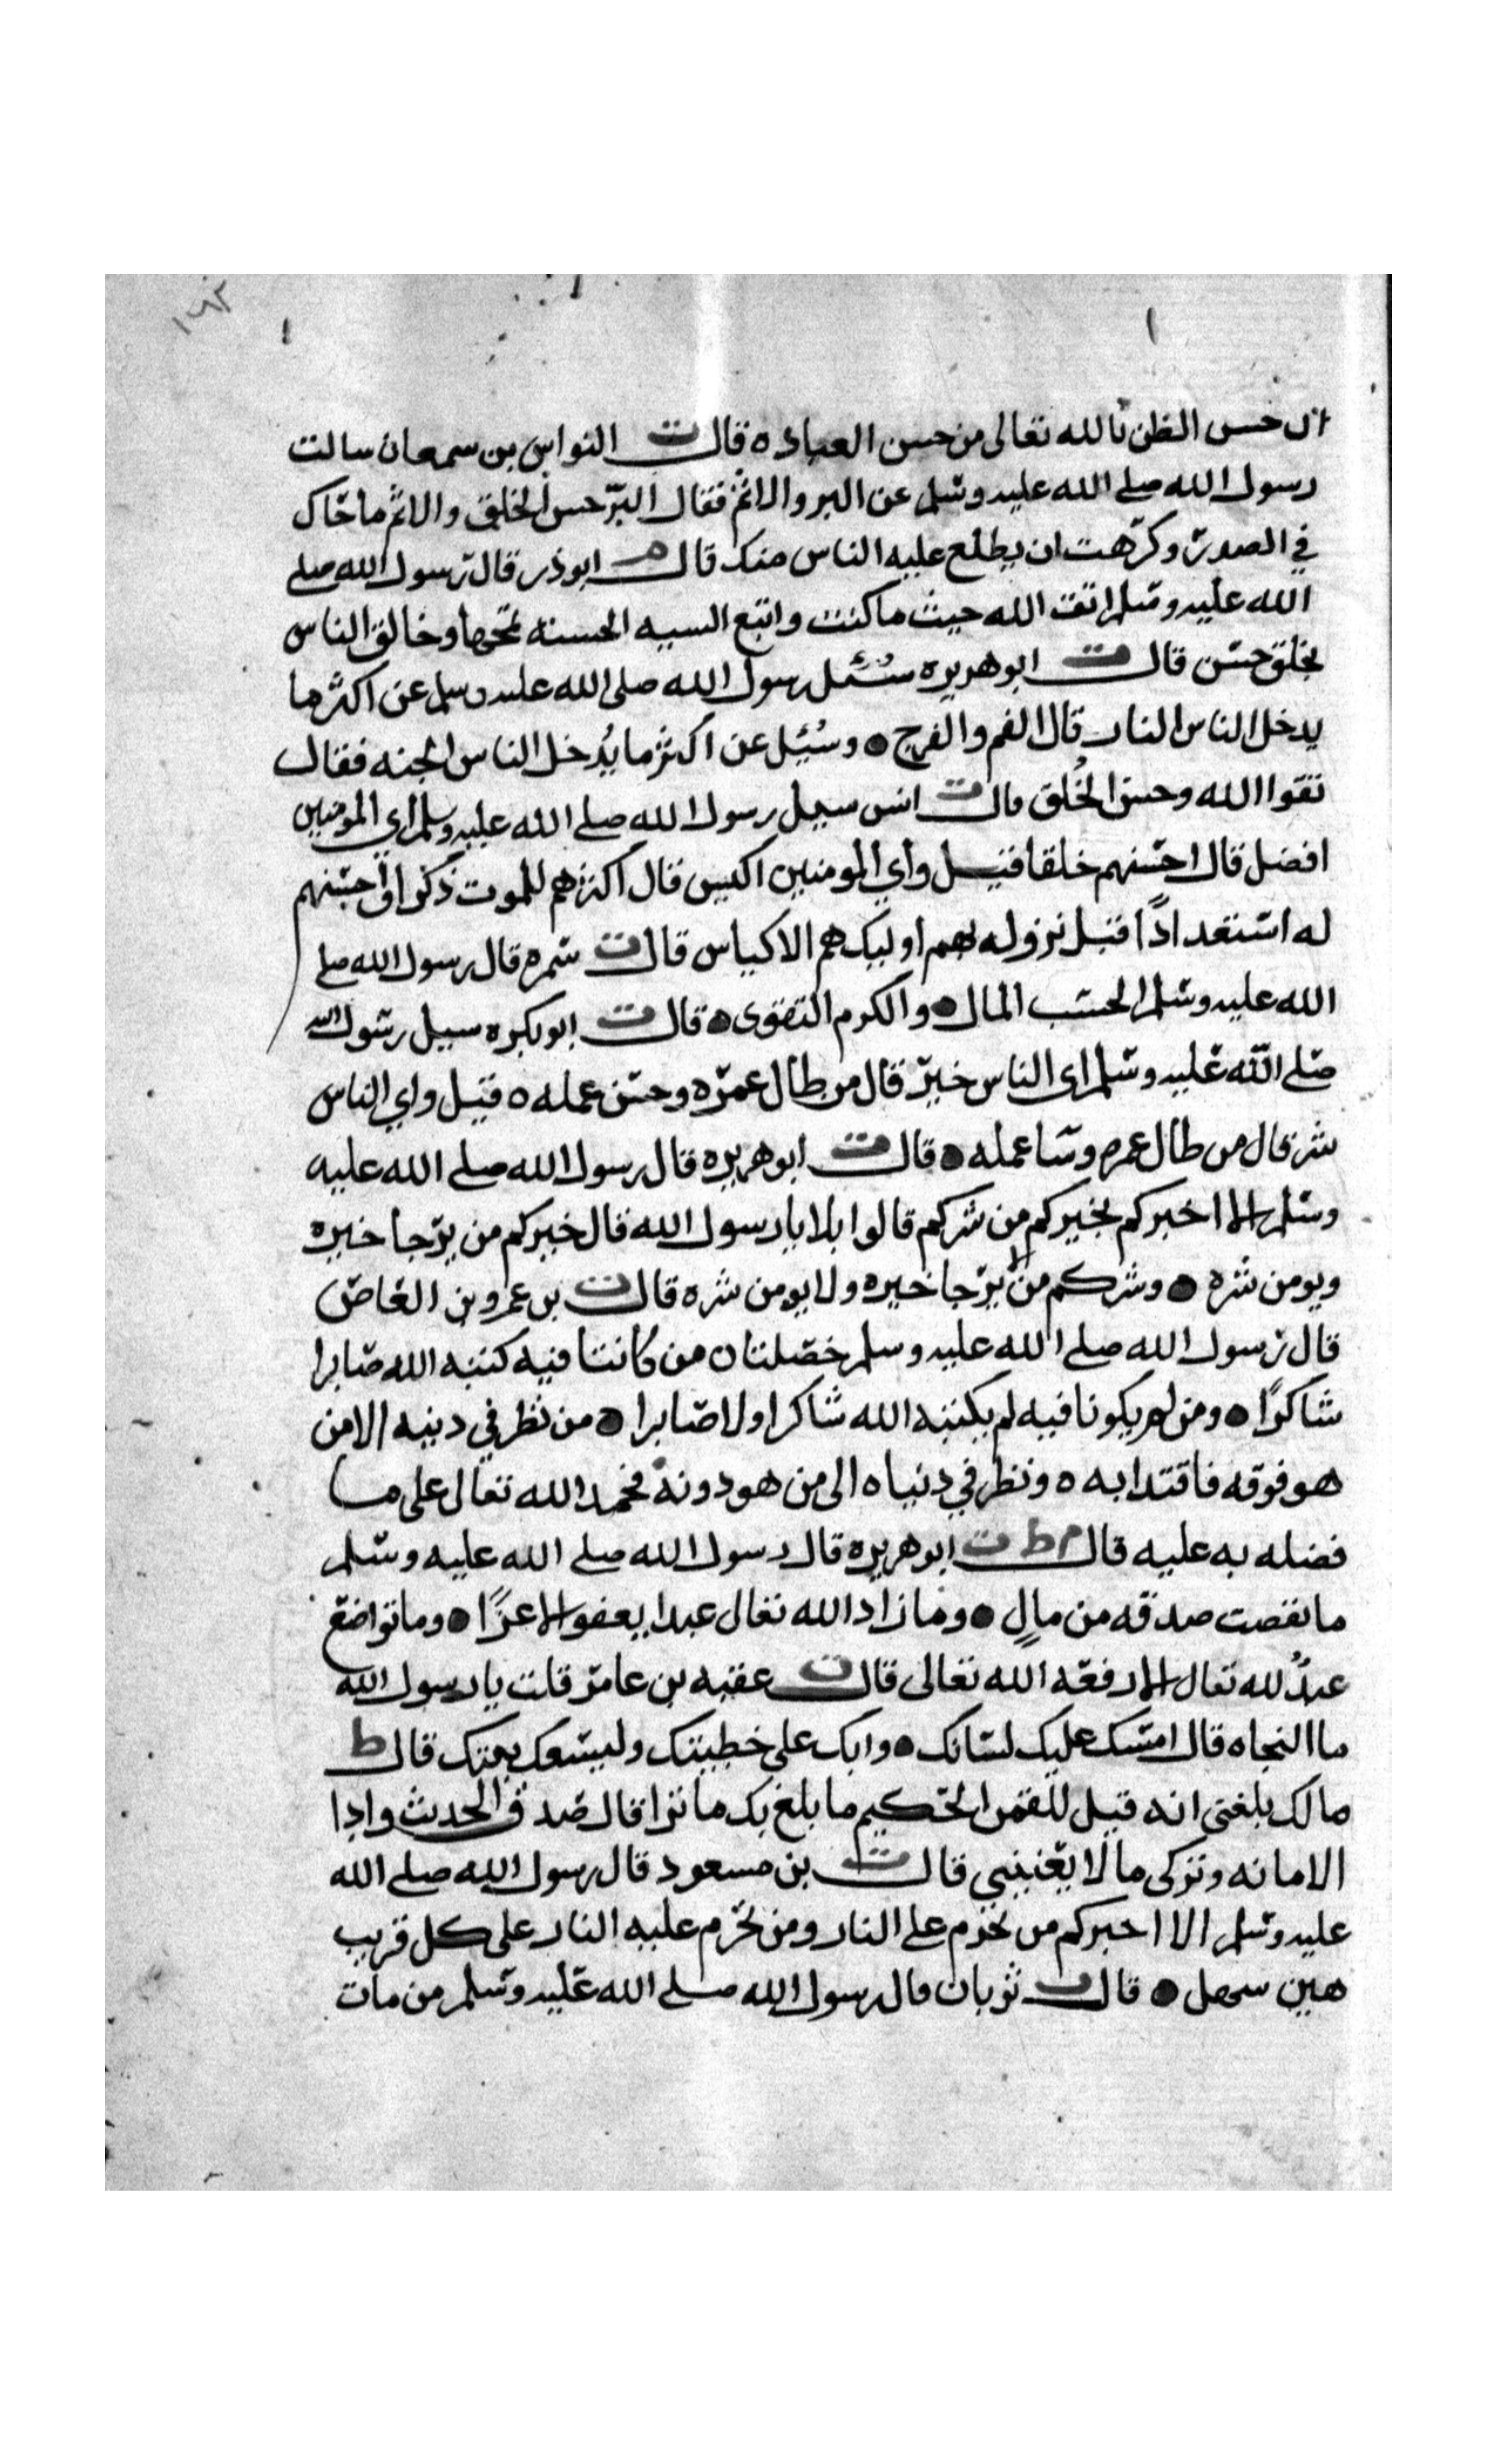 ١٦٢
ان حسن الظن بالله تعالى من حسن العباده ه قال ت النواس بن سمعان سالت
رسول الله صلى الله عليه وسلم عن البر والاثم فقال البر حسن الخلق والاثم ما حاك
في الصدر وكرهت ان يطلع عليه الناس منك قال م ابوذر قال رسول الله صلى
الله عليه وسلم اتق الله حيث ما كنت واتبع السيه الحسنه تمحها وخالق الناس
بخلق حسن قال ت ابو هريره سُئل رسول الله صلى الله عليه وسلم عن اكثر ما
يدخل الناس النار قال الفم والفرج ● وسُئِل عن اكثر ما يُدخل الناس الجنه فقال
تقوا الله وحسن الخُلق قال ت انس سيل رسول الله صلى الله عليه وسلم اي المومنين
افضل قال احسنهم خلقا فقيل واي المومنين اكيس قال اكثرهم للموت ذكرا واحسنهم
له استعدادًا قبل نزوله بهم اوليك هم الاكياس قال ت سمره قال رسول الله صلى
الله عليه وسلم الحسب المال ● والكرم التقوى ● قال ت ابو بكره سيل رسول الله
صلى الله عليه وسلم اي الناس خير قال من طال عمره وحسن عمله ه قيل واي الناس
شر قال من طال عمره وسا عمله ● قال ت ابو هريره قال رسول الله صلى الله عليه
وسلم الا اخبركم بخيركم من شركم قالوا بلا يا رسول الله قال خيركم من يرجا خيره
ويومن شره ● وشركم من لا يرجا خيره ولا يومن شره قال ت بن عمرو بن العاص
قال رسول الله صلى الله عليه وسلم خصلتان من كانتا فيه كتبه الله صابرا
شاكرًا ● ومن لم يكونا فيه لم يكتبه الله شاكرا ولا صابرا ● من نظر في دينه الا من
هو فوقه فاقتدا به ه ونظر في دنياه الى من هو دونه فحمد الله تعالى على ما
فضله به عليه قال م ط ت ابو هريره قال رسول الله صلى الله عليه وسلم
ما نقصت صدقه من مالٍ ● وما زاد الله تعال عبدا بعفو الا عزًا ● وما تواضع
عبدٌ لله تعال الا رفعه الله تعالى قال ت عقبه بن عامر قلت يا رسول الله
ما النجاه قال امسك عليك لسانك ● وابك على خطيتك وليسعك بيتك قال ط
مالك بلغني انه قيل للقمن الحكيم ما بلغ بك ما نرا قال صدق الحديث وادا
الامانه وتركى ما لا يعنيني قال ت بن مسعود قال رسول الله صلى الله
عليه وسلم الا اخبركم من تحرم على النار ومن تحرم عليه النار على كل قريب
هين سهل ● قال ت ثوبان قال رسول الله صلى الله عليه وسلم من مات